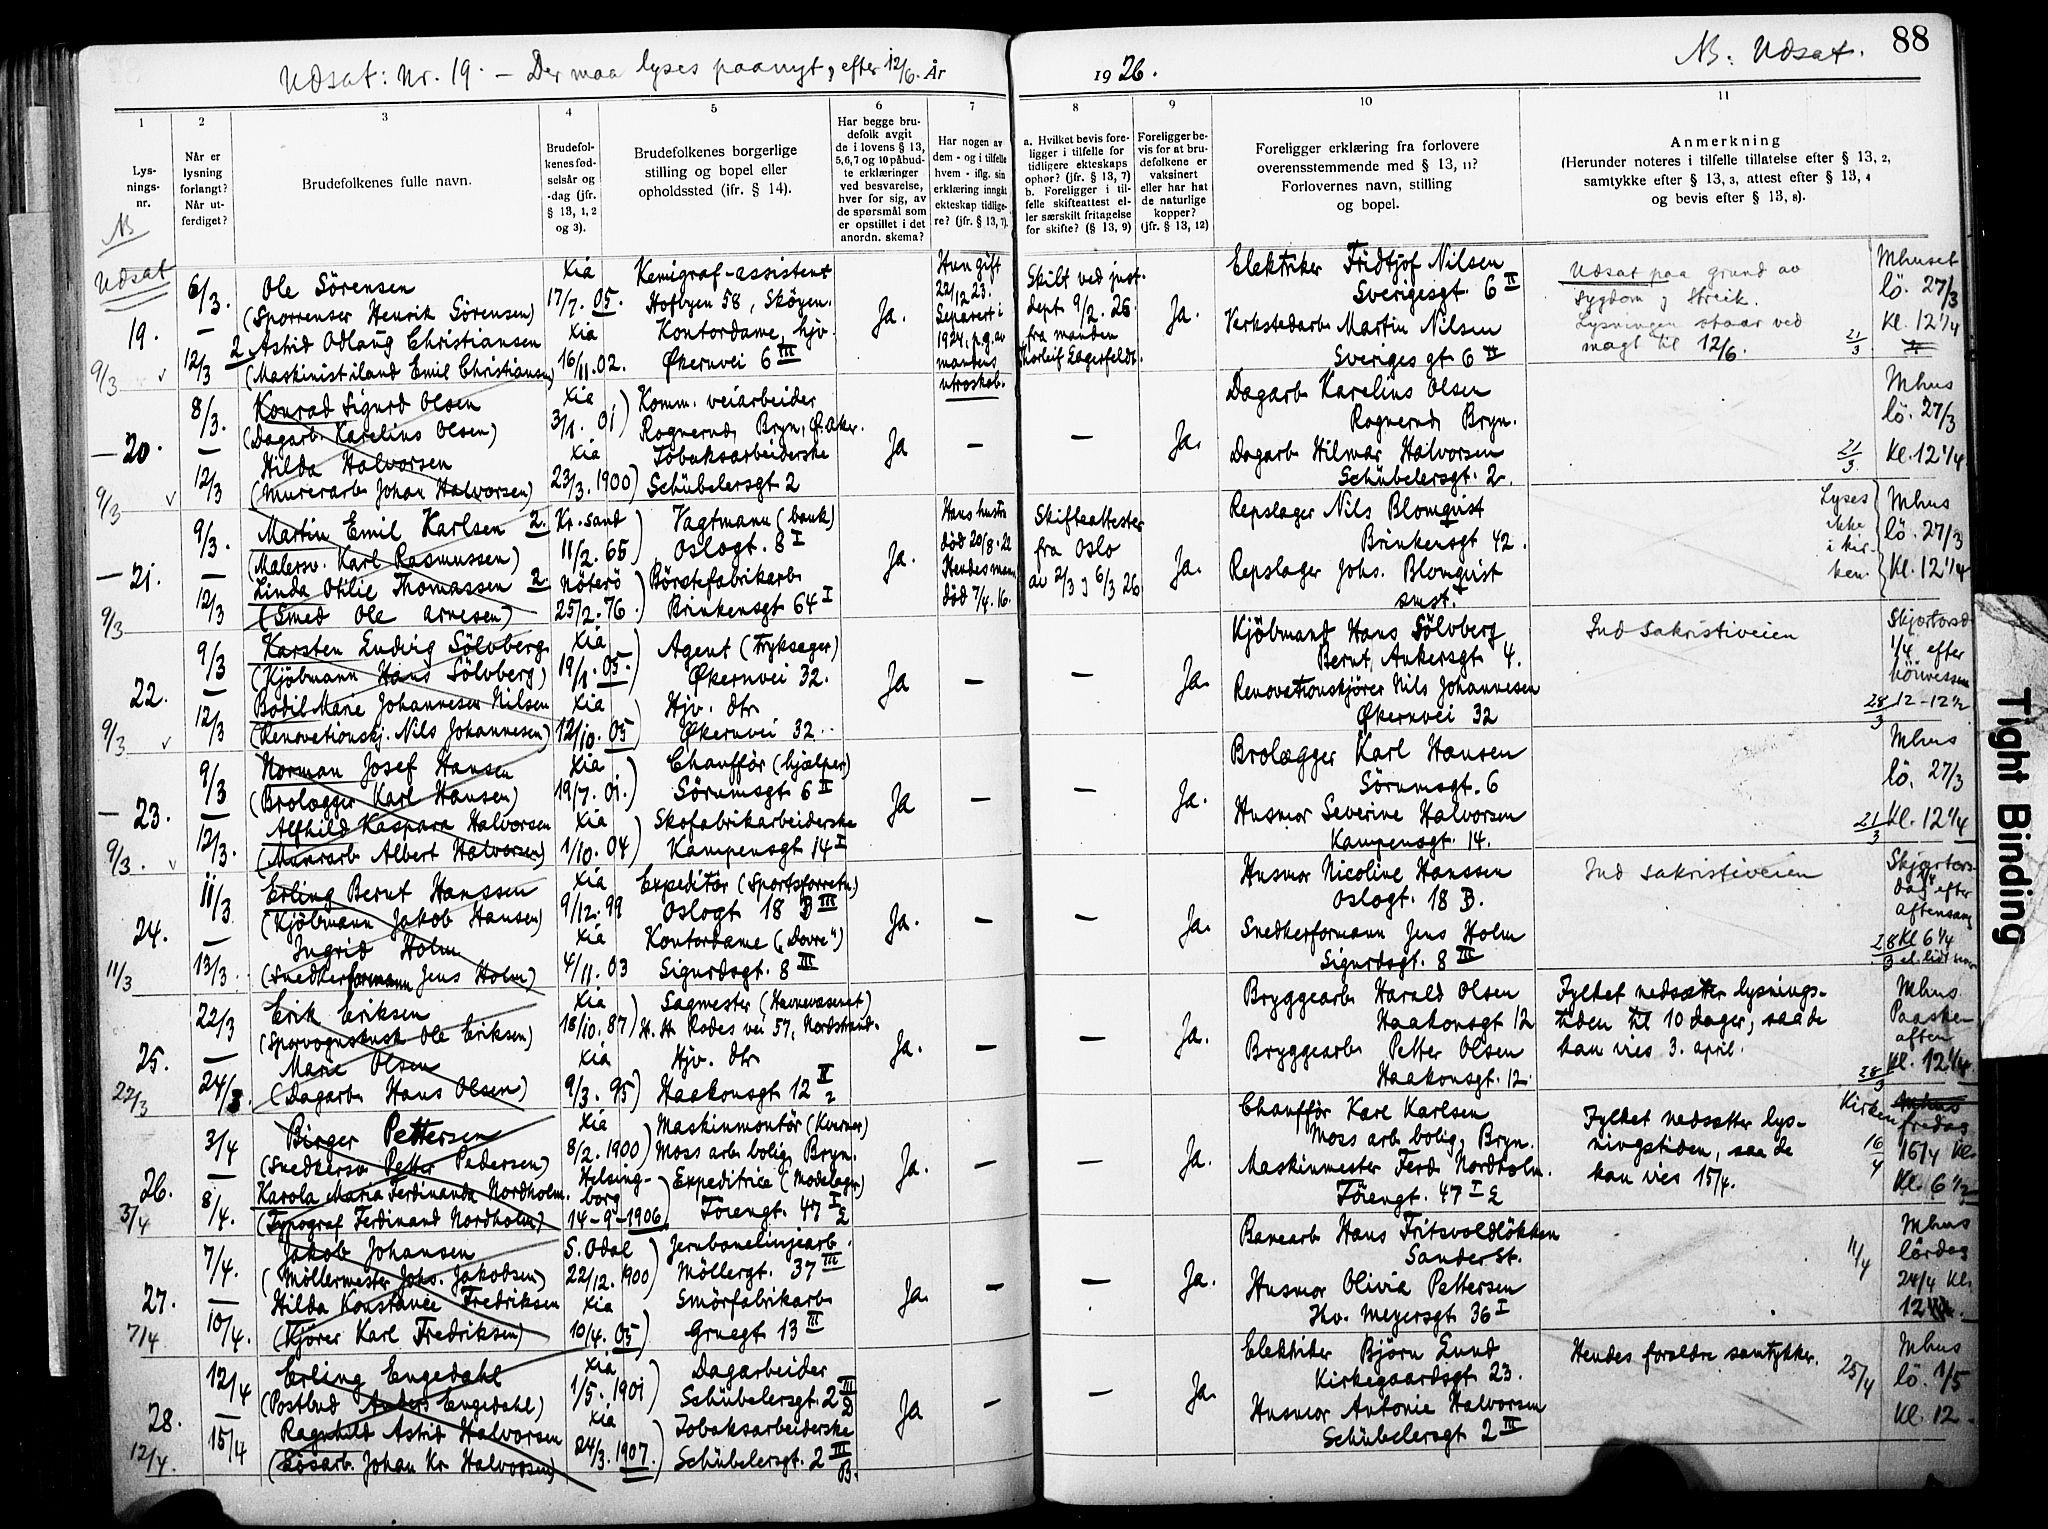 Udsat: Nr. 19. – Der maa lyses paanyt, efter 12/6. År 1926. NB: Udsat. 88
1 2 3 4 5 6 7 8 9 10 11
Lysnings-nr.
Når er lysning forlangt? Når utferdiget?
Brudefolkenes fulle navn.
Brudefolkenes fødselsår og -dag (jfr. § 13, 1, 2 og 3).
Brudefolkenes borgerlige stilling og bopel eller opholdssted (jfr. § 14).
Har begge brudefolk avgit de i lovens § 13, 5, 6, 7 og 10 påbudte erklæringer ved besvarelse, hver for sig, av de spørsmål som er opstillet i det anordn. skema?
Har nogen av dem - og i tilfelle hvem - iflg. sin erklæring inngått ekteskap tidligere? (jfr. § 13, 7).
a. Hvilket bevis foreligger i tilfelle for tidligere ekteskaps ophør? (jfr. § 13, 7) b. Foreligger i tilfelle skifteattest eller særskilt fritagelse for skifte? (§ 13, 9)
Foreligger bevis for at brudefolkene er vaksinert eller har hat de naturlige kopper? (jfr. § 13, 12)
Foreligger erklæring fra forlovere overensstemmende med § 13, 11? Forlovernes navn, stilling og bopel.
Anmerkning (Herunder noteres i tilfelle tillatelse efter § 13, 2, samtykke efter § 13, 3, attest efter § 13, 4 og bevis efter § 13, 8).
NB
Udsat
19.
9/3
6/3. – 12/3
Ole Sörensen
(Sporrenser Henrik Sörensen)
2 Astrid Odlaug Christiansen
(Maskinist iland Emil Christiansen)
Xia
17/7. 05.
Xia
16/11. 02.
Kemigraf-assistent
Hofbyen 58, Sköyen.
Kontordame, hjv.
Økernvei 6 III
Ja.
Hun gift
22/12 23.
Separert i
1924, p.g.av
mandens
utroskab.
Skilt ved just.
dept. 9/2. 26.
fra manden
Thorleif Lagerfeldt.
Ja.
Elektriker Fridtjof Nilsen
Sverigesgt. 6 II
Verkstedarb. Martin Nilsen
Sverigesgt. 6 II
Udsat paa grund av
Sygdom og Streik.
Lysningen staar ved
magt til 12/6.
21/3
Mhuset
lö. 27/3
Kl. 12 1/4
20.
9/3
8/3. – 12/3
Konrad Sigurd Olsen
(Dagarb. Karelius Olsen)
Hilda Halvorsen
(Murerarb. Johan Halvorsen)
Xia
3/8. 01)
Xia
23/3. 1900)
Komm. veiarbeider
Rognerud, Bryn, Ø. Aker.
Tobaksarbeiderske
Schübelersgt 2
Ja
–
–
Ja.
Dagarb. Karelius Olsen
Rognerud, Bryn.
Dagarb. Hilmar Halvorsen
Schübelersgt. 2.
21/3
Mhus
lö. 27/3
Kl. 12 1/4
21.
9/3
9/3. – 12/3
Martin Emil Karlsen 2.
(Malersv. Karl Rasmussen)
Linda Otilie Thomassen 2
(Smed Ole Arnesen)
Kr. sand
11/2. 65)
Nöterö
25/2. 76)
Vagtmann (bank)
Oslogt. 8 I
Börstefabrikarb.
Brinkensgt 64 I
Ja.
Hans hustru
död 20/8. 22
Hendes man
död 7/4. 16.
Skifteattester
fra Oslo
av 2/3 og 6/3 26
Ja.
Repslager Nils Blomqvist
Brinkensgt 42.
Repslager Johs. Blomqvist
smst.
Lyses
ikke
i kir-
ken.
Mhus
lö. 27/3
Kl. 12 1/4
22.
9/3
9/3 – 12/3
Karsten Ludvig Sölvberg
(Kjöbmann Hans Sölvberg)
Bodil Marie Johannesen Nilsen
(Renovationskj. Nils Johannesen)
Xia
19/8. 05.)
Xia
12/10. 05)
Agent (Tryksager)
Økernvei 32.
Hjv. dtr
Økernvei 32.
Ja
–
–
Ja.
Kjöbmand Hans Sölvberg
Bernt Ankersgt 4.
Renovationskjörer Nils Johannesen
Økernvei 32
Ind Sakristiveien
28/3
Skjærtorsd
1/4 efter
höimessen
12 – 12 1/2
23.
9/3.
9/3 – 12/3.
Norman Josef Hansen
(Brolægger Karl Hansen)
Alfhild Kaspara Halvorsen
(Murarb. Albert Halvorsen)
Xia
19/7. 01.)
Xia
1/10. 04)
Chaufför (hjælper)
Sörumsgt 6 II
Skofabrikarbeiderske
Kampensgt 14 I
Ja
–
–
Ja.
Brolægger Karl Hansen
Sörumsgt. 6
Husmor Severine Halvorsen
Kampensgt. 14.
21/3
Mhus
lö. 27/3
Kl. 12 1/4
24.
11/3
11/3. – 13/3.
Erling Bernt Hanssen
(Kjöbmann Jakob Hansen)
Ingrid Holm
(Snedkerformann Jens Holm)
Xia
9/12. 99
Xia
4/11. 03
Expeditör (Sportsforretn.)
Oslogt 18 B III
Kontordame („Dovre“)
Sigurdsgt. 8 III
Ja.
–
–
Ja.
Husmor Nicoline Hanssen
Oslogt. 18 B.
Snedkerformann Jens Holm
Sigurdsgt. 8 III
Ind sakristiveien
28/3
Skjærtors-
dag 1/4 efter
aftensang
Kl 6 1/4
25.
22/3
22/3 – 24/3.
Erik Eriksen
(Sporvognskusk Ole Eriksen)
Marie Olsen
(Dagarb. Hans Olsen)
Xia
18/10. 87)
Xia
9/3. 95)
Sagmester (Havnevæsenet)
H. H. Rodes vei 57, Nordstrand.
Hjv. dtr
Haakonsgt 12 II
Ja.
–
–
Ja.
Bryggearb. Harald Olsen
Haakonsgt 12
Bryggearb. Petter Olsen
Haakonsgt. 12.
Fylket nedsætter lysnings-
tiden til 10 dager, saa de
kan vies 3. april.
28/3
Mhus.
Paaske-
aften
Kl. 12 1/4
26.
3/4
3/4 – 8/4.
Birger Pettersen
(Snedkersv. Petter Pedersen)
Karola Maria Ferdinanda Nordholm.
(Typograf Ferdinand Nordholm)
Xia
8/2. 1900)
Helsing-
borg
14-9-1906)
Maskinmontör (Kværner)
Moss arb. bolig, Bryn.
Expeditrice (Modelager)
Töiengt. 47 I
Ja.
–
–
Ja.
Chaufför Karl Karlsen
Moss arb. bolig, Bryn.
Maskinmester Ferd. Nordholm.
Töiengt. 47 I
Fylket nedsætter lys-
ningstiden, saa de
kan vies 15/4.
Kirken
16/4
Mhus
fredag
16/4 Kl.
Kl. 6 1/2
27.
7/4
7/4. – 10/4.
Jakob Johansen
(Möllermester Johs. Jakobsen)
Hilda Konstance Fredriksen
(Kjörer Karl Fredriksen)
S. Odal
22/12. 1900)
Xia
10/4. 05)
Jernbanelinjearb.
Möllergt. 37 III
Smörfabrikarb.
Gruegt 13 III
Ja.
–
–
Ja.
Banearb. Hans Fritsvoldlökken
Sander st.
Husmor Olivia Pettersen
Thv. Meyersgt 36 I
11/4
Mhus
lördag
24/4 Kl.
12
28.
12/4.
12/4 – 15/4
Erling Engedahl
(Postbud Anders Engedahl)
Ragnhild Astrid Halvorsen
(Lösarb. Johan Kr. Halvorsen)
Xia
1/5. 1901)
Xia
24/3. 1907.)
Dagarbeider
Schübelersgt. 2 III
Tobaksarbeiderske
Schübelersgt. 2 III B.
Ja
–
–
Ja.
Elektriker Björn Lund
Kirkegaardsgt 23.
Husmor Antonie Halvorsen
Schübelersgt 2 III
Hendes forældre samtykker.
25/4
Mhus
lö. 1/5
Kl. 12
Tight Binding